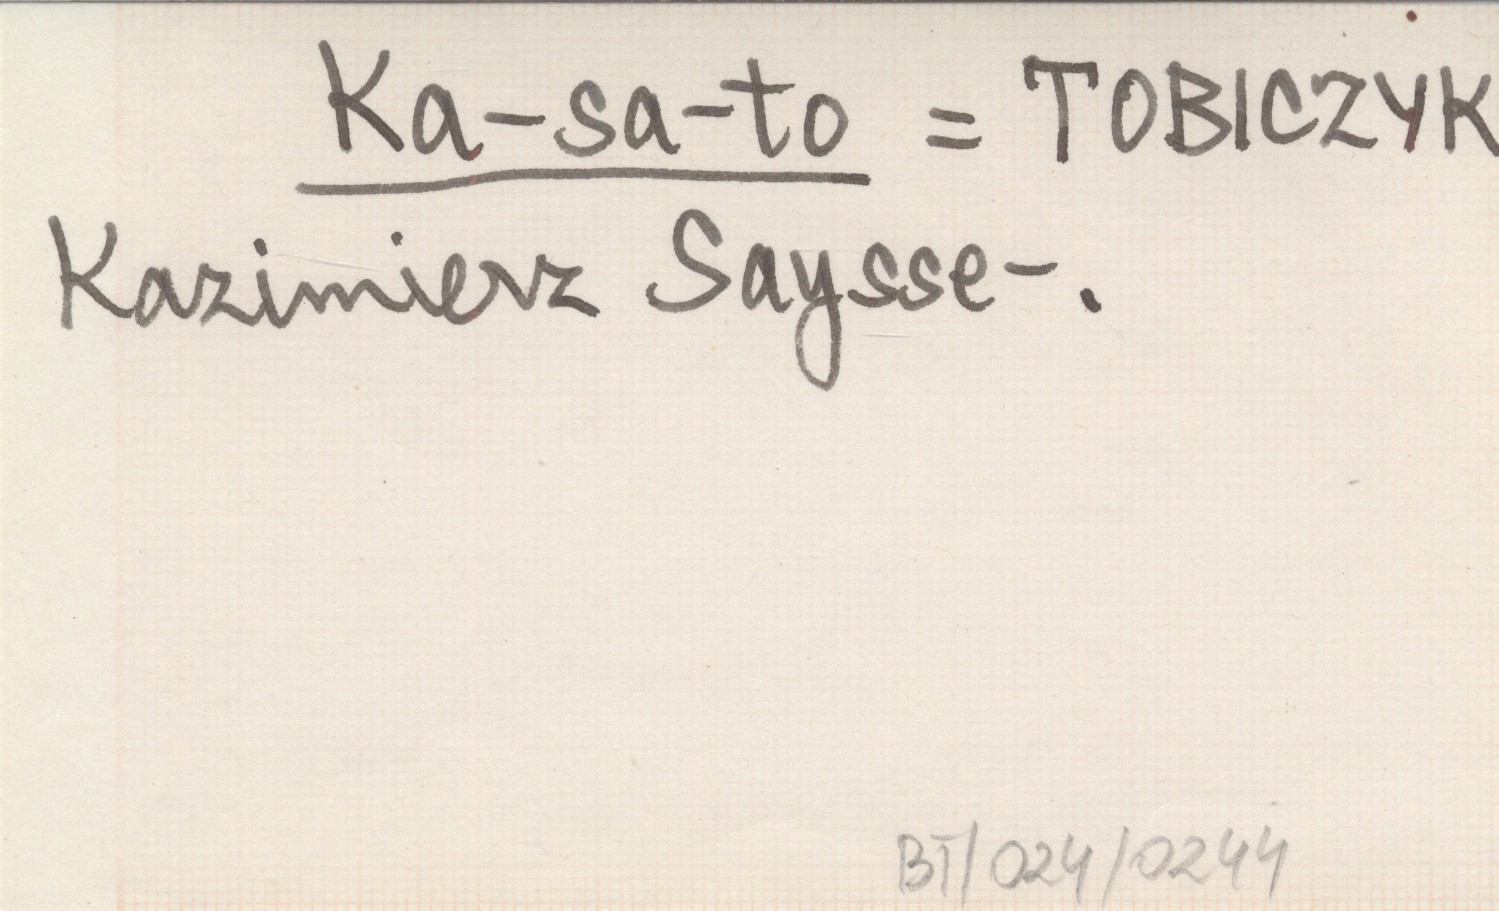 Ka-sa-to = TOBICZYK
Kazimierz Saysse-.
BT/024/0244